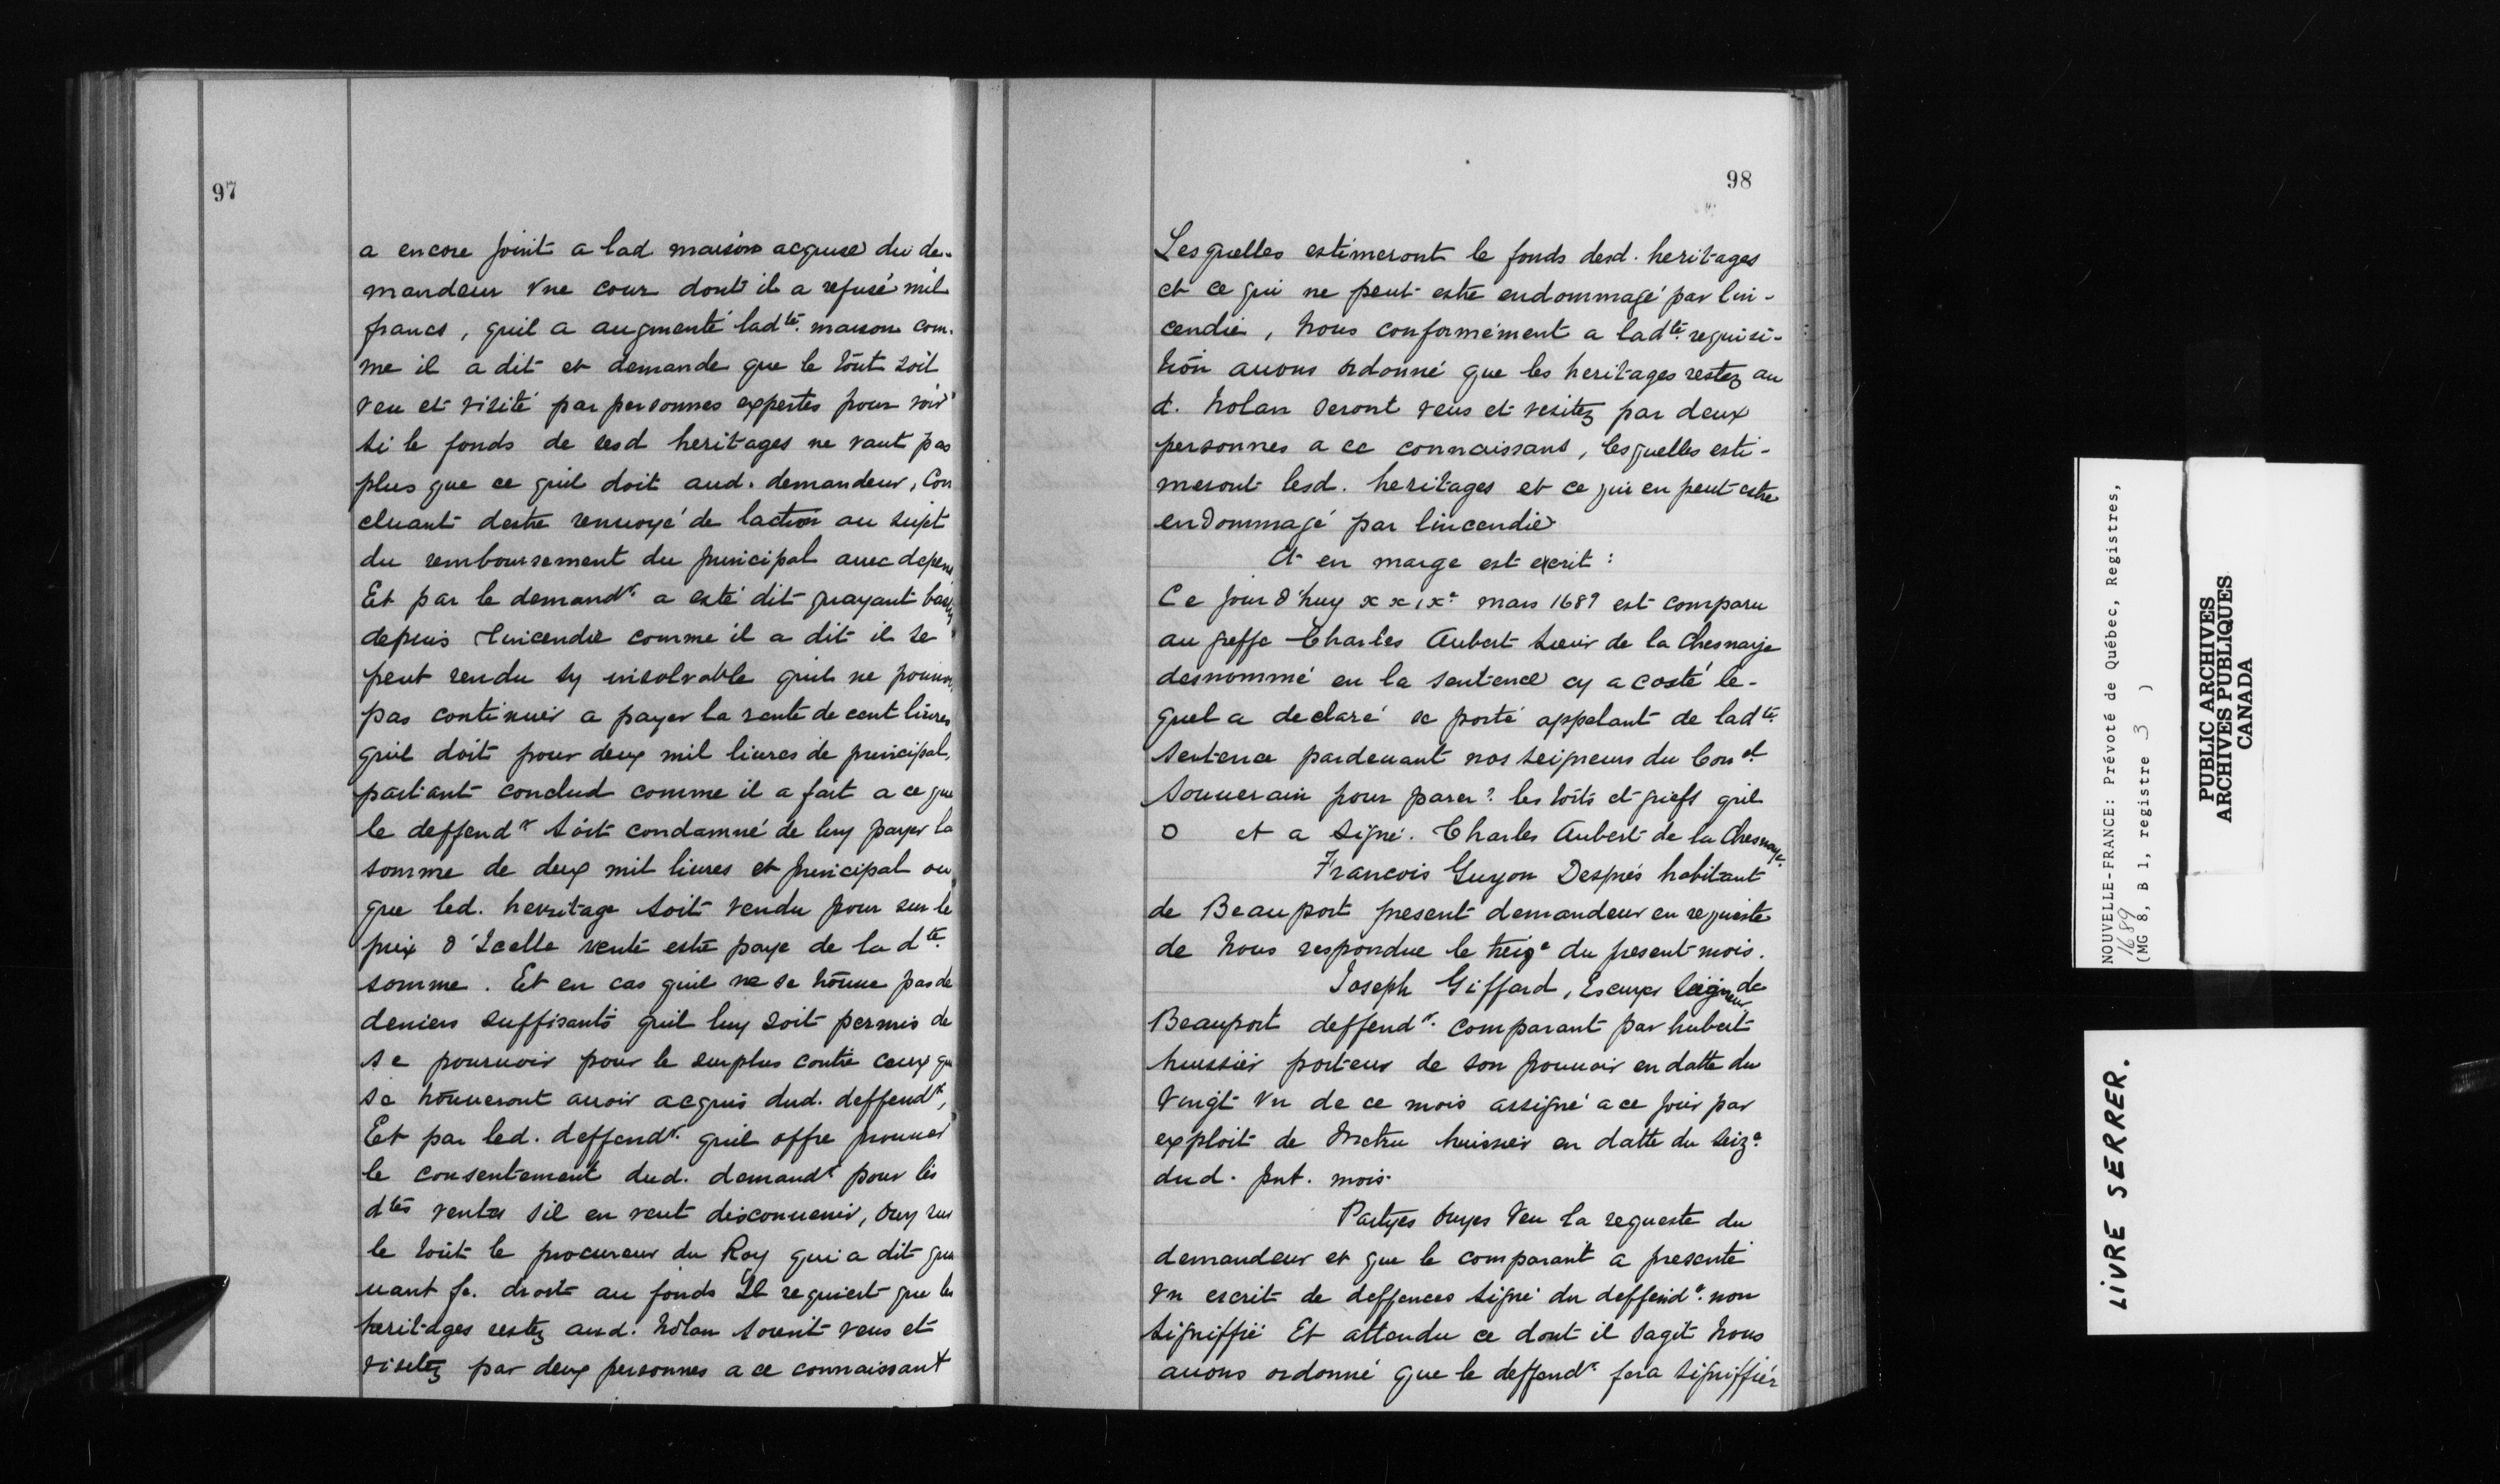 97
a encore joint a lad maison acquise du de-
mandeur vne cour dont il a refusé mil
francs, quil a augmenté ladte. maison com-
me il a dit et demande que le tout soit
veu et visité par personnes expertes pour voir
si le fonds de sesd heritages ne vaut pas
plus que ce quil doit aud. demandeur, Con
cluant destre renuoyé de laction au sujet
du remboursement du principal auec depens
Et par le demandr. a esté dit quayant
depuis lincendie comme il a dit il se
peut rendu sy insolvable quil ne pouuoi
pas continuer a payer la rente de cent liures
quil doit pour deux mil liures de principal,
partant conclud comme il a fait a ce que
le deffendr soit condamné de luy payer la
somme de deux mil liures et principal ou
que led. heritage soit vendu pour sur le
prix d'Icelle vente estre paye de la dte.
somme. Et en cas quil ne se trouue pas de
deniers suffisants quil luy soit permis de
se pouruoir pour le surplus contre ceux qu
se trouueront auoir acquis dud. deffendr,
Et par led. deffendr. quil offre prouuer
le consentement dud. demandr pour les
dtes ventes sil en veut disconuenir, Ouy sur
le tout le procureur du Roy qui a dit qua
uant fe. droit au fonds Il requiert que les
heritages restez aud. Nolan soient veus et
visitez par deux personnes a ce connaissant
98
Lesquelles estimeront le fonds desd. heritages
et ce qui ne peut estre endommagé par lin-
cendie, Nous conformément a ladte. requisi-
tion auons ordonné que les heritages restez au
d. Nolan seront veus et visitez par deux
personnes a ce connaissans, lesquelles esti-
meront lesd. heritages et ce qui en peut estre
endommagé par lincendie
Et en marge est escrit :
Ce jour d'huy xxixe. mars 1689 est comparu
au greffe Charles Aubert sieur de la Chesnaye
desnommé en la sentence cy a costé le-
quel a declaré se porté appelant de ladte.
sentence pardeuant nos seigneurs du Conel
Souuerain pour parer? les torts et griefs quil
O et a signé. Charles Aubert de la Chesnaye.
Francois Guyon Després habitant
de Beauport present demandeur en requeste
de Nous respondue le treize du present mois.
Joseph Giffard, Escuyer Seigneur de
Beauport deffendr. comparant par hubert
huissier porteur de son pouuoir en datte du
vingt vn de ce mois assigné a ce jour par
exploit de Metru huissier en datte du seize.
dud. pnt. mois.
Partyes Ouyes Veu la requeste du
demandeur et que le comparant a presenté
vn escrit de deffences signé du deffendr. non
signiffié Et attendu ce dont il sagit Nous
auons ordonné que le deffendr. fera signiffier
NOUVELLE-FRANCE: Prévoté de Québec, Registres,
1689
(MG 8, B 1, registre 3 )
PUBLIC ARCHIVES
ARCHIVES PUBLIQUES
CANADA
LIVRE SERRER.